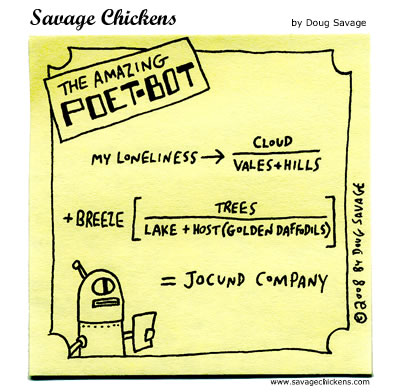 Savage Chickens
by Doug Savage
THE AMAZING
POET-BOT
MY LONELINESS → CLOUD
VALES+HILLS
+ BREEZE [ TREES
LAKE + HOST (GOLDEN DAFFODILS) ]
= JOCUND COMPANY
© 2008 BY DOUG SAVAGE
www.savagechickens.com